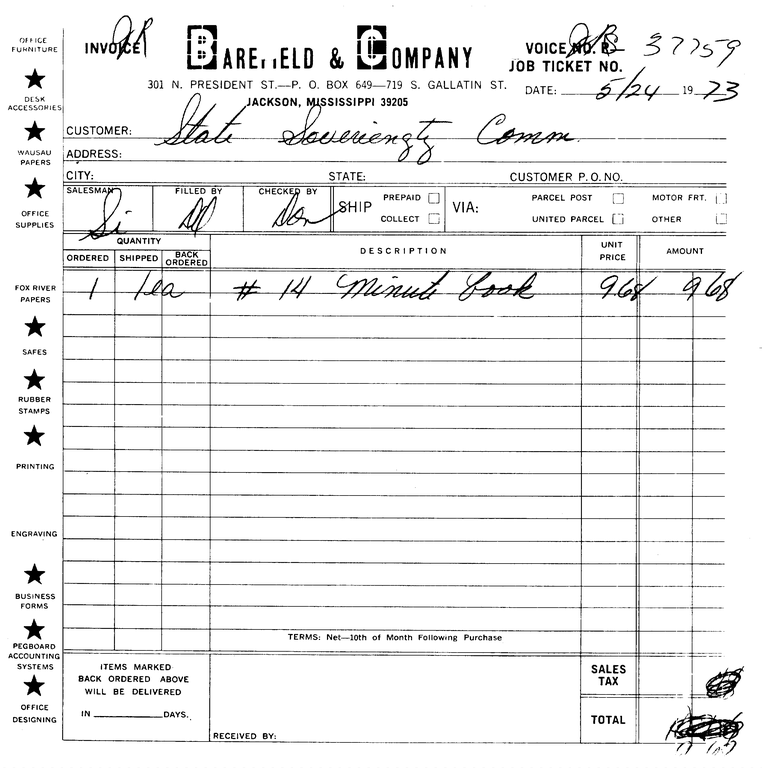 INVOICE BAREFIELD & COMPANY VOICE NO. R- 37759
JOB TICKET NO.
301 N. PRESIDENT ST.—P. O. BOX 649—719 S. GALLATIN ST.
JACKSON, MISSISSIPPI 39205
DATE: 5/24 19 73
CUSTOMER: State Soveriengty Comm.
ADDRESS:
CITY: STATE: CUSTOMER P.O. NO.
SALESMAN Si FILLED BY CHECKED BY Don SHIP PREPAID COLLECT VIA: PARCEL POST MOTOR FRT. UNITED PARCEL OTHER
QUANTITY
ORDERED SHIPPED BACK ORDERED DESCRIPTION UNIT PRICE AMOUNT
1 1ea # 14 Minute book 9.68 9 68
TERMS: Net—10th of Month Following Purchase
ITEMS MARKED
BACK ORDERED ABOVE
WILL BE DELIVERED
IN DAYS.
RECEIVED BY:
SALES TAX
TOTAL
OFFICE FURNITURE
DESK ACCESSORIES
WAUSAU PAPERS
OFFICE SUPPLIES
FOX RIVER PAPERS
SAFES
RUBBER STAMPS
PRINTING
ENGRAVING
BUSINESS FORMS
PEGBOARD ACCOUNTING SYSTEMS
OFFICE DESIGNING